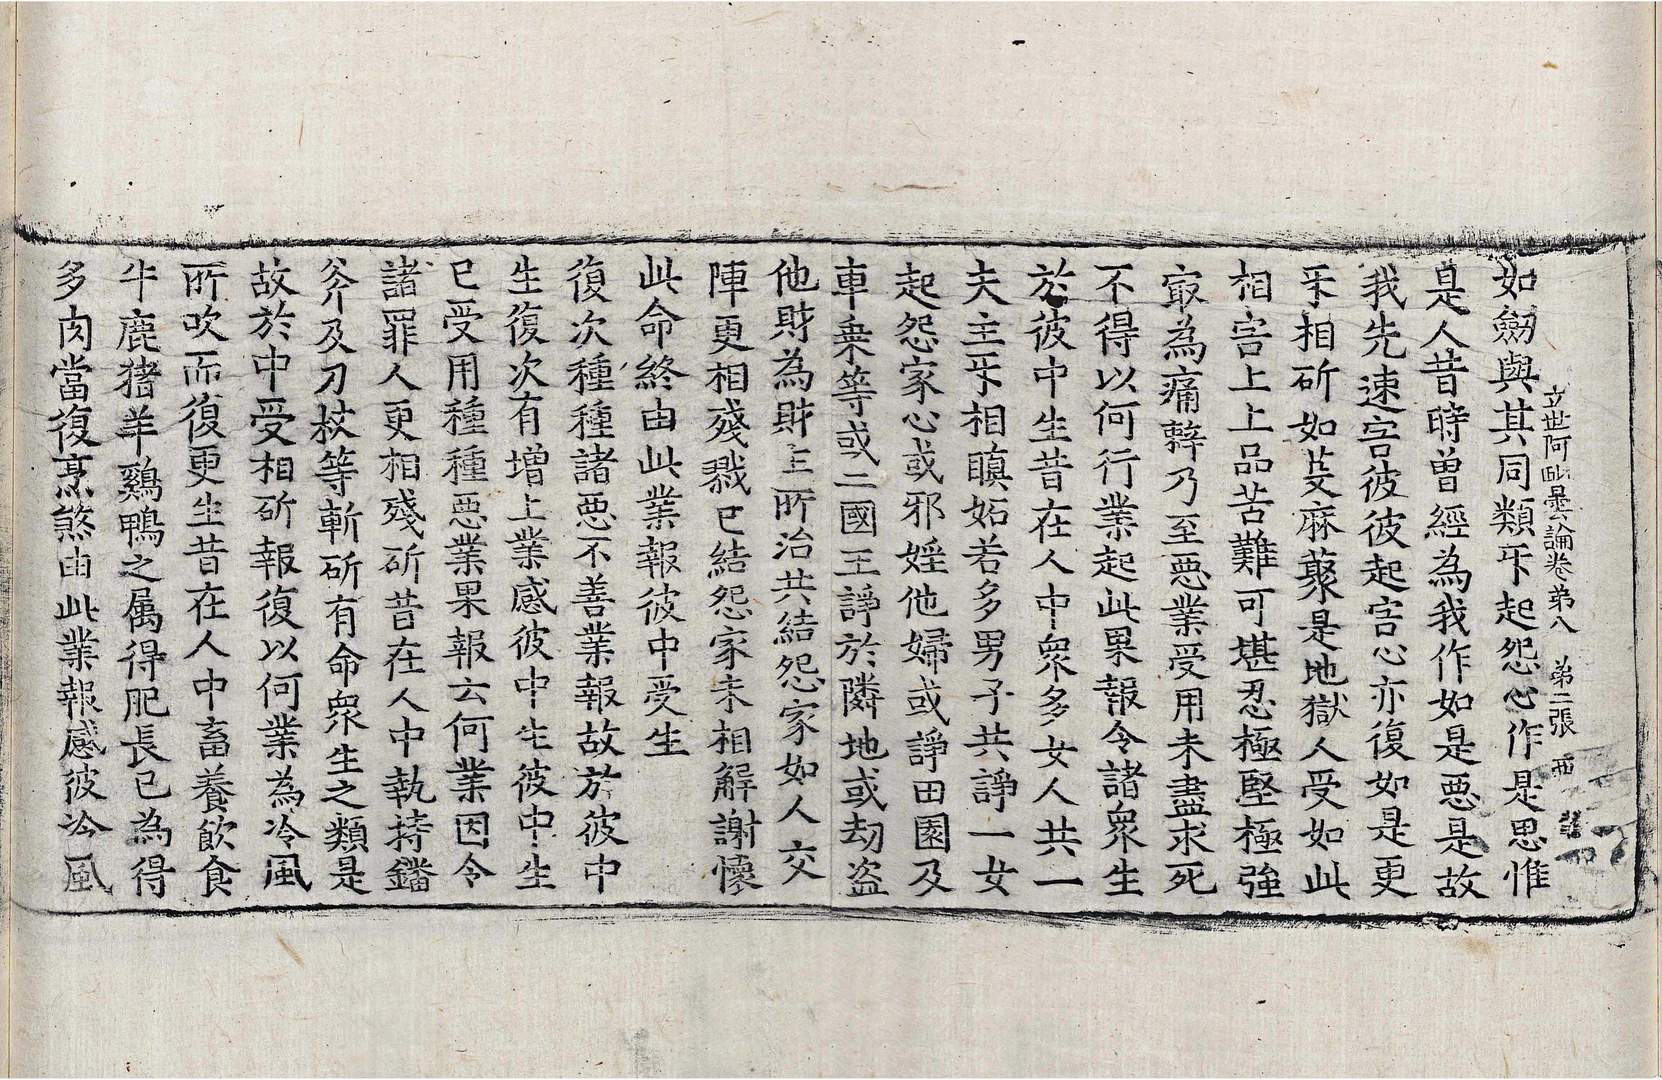 立世阿毗曇論卷第八　第二張　西
如劒與其同類㸦起怨心作是思惟
是人昔時曽經為我作如是惡是故
我先速害彼彼起害心亦復如是更
㸦相斫如芟麻藂是地獄人受如此
相害上上品苦難可堪忍極堅極強
寂為痛辢乃至惡業受用未盡求死
不得以何行業起此果報令諸衆生
於彼中生昔在人中衆多女人共一
夫主㸦相瞋妬若多男子共諍一女
起怨家心或邪婬他婦或諍田園及
車乗等或二國王諍於隣地或劫盜
他財為財主所治共結怨家如人交
陣更相殘戮已結怨家未相解謝懷
此命終由此業報彼中受生
復次種種諸惡不善業報故於彼中
生復次有増上業感彼中生彼中生
已受用種種惡業果報云何業因令
諸罪人更相殘斫昔在人中執持鐇
斧及刀杖等斬斫有命衆生之類是
故於中受相斫報復以何業為冷風
所吹而復更生昔在人中畜養飲食
牛鹿猪羊鷄鴨之属得肥長已為得
多肉當復烹煞由此業報感彼冷風